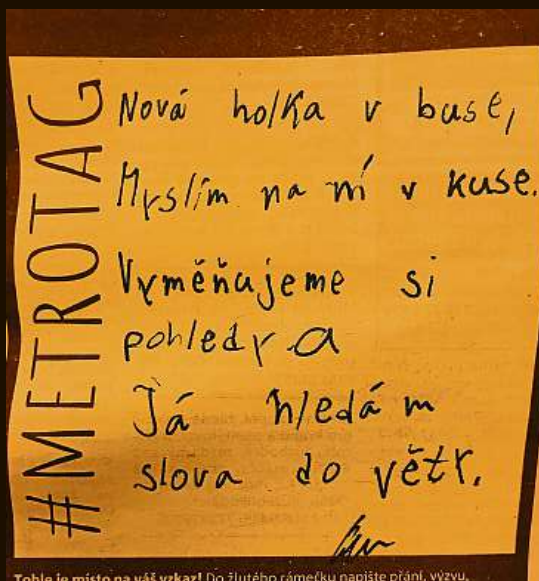 #METROTAG
Nová holka v buse,
Myslím na ní v kuse.
Vyměňujeme si
pohledy a
Já hledám
slova do věty.
Tohle je místo na váš vzkaz! Do žlutého rámečku napište přání, výzvu,